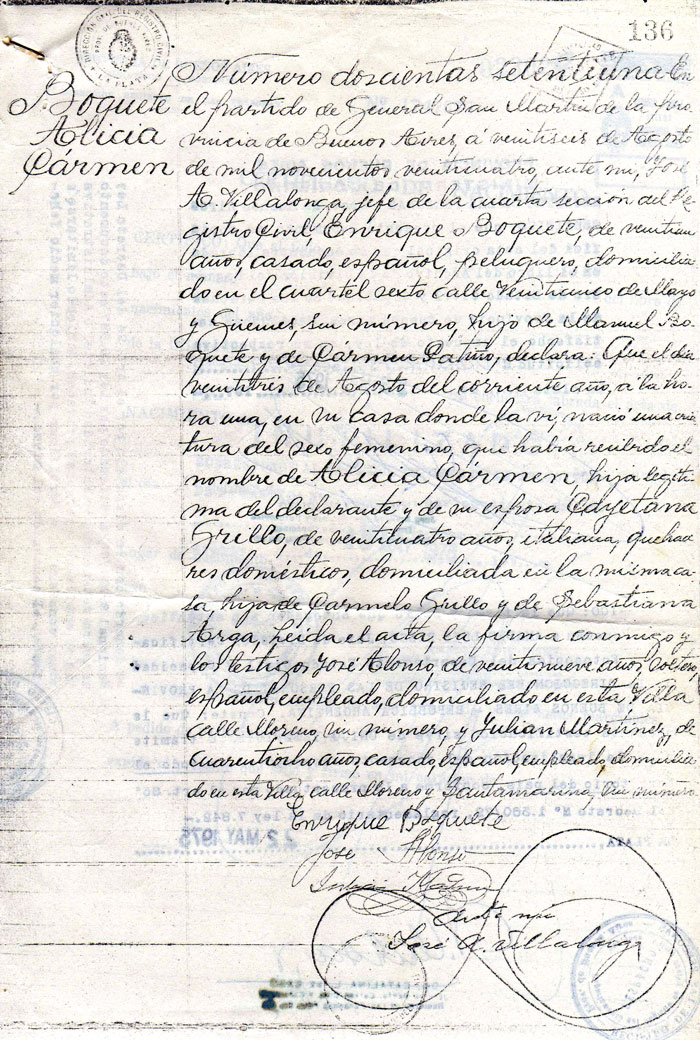 136
DIRECCION GRAL. DEL REGISTRO CIVIL
LA PLATA
Boquete
Alicia
Cármen
Número doscientas setentiuna En
el partido de General San Martín de la pro
vincia de Buenos Aires, á veintiseis de Agosto
de mil novecientos veinticuatro, ante mí, José
A. Villalonga, jefe de la cuarta sección del Re
gistro Civil Enrique Boquete, de veintiun
años, casado, español, peluquero, domicilia
do en el cuartel sexto calle Veinticinco de Mayo
y Güemes, sin número, hijo de Manuel Bo
quete y de Cármen Patiño, declara: Que el dia
veintitrés de Agosto del corriente año, a la ho
ra una, en su casa donde la ví, nació una cria
tura del sexo femenino, que había recibido el
nombre de Alicia Cármen, hija legíti
ma del declarante y de su esposa Cayetana
Grillo, de veinticuatro años, italiana, quehace
res domésticos, domiciliada en la misma ca
sa, hija de Carmelo Grillo y de Sebastiana
Arga, Leida el acta, la firma conmigo y
los testigos José Alonso, de veintinueve años, soltero,
español, empleado, domiciliado en esta Villa
calle Moreno, sin número, y Julian Martinez, de
cuarentiocho años, casado, español, empleado, domicilia
do en esta Villa, calle Moreno y Santamarina, sin número
Enrique Boquete
José Alonso
Julian Martinez
Ante mí
José A. Villalonga
22 MAY 1975